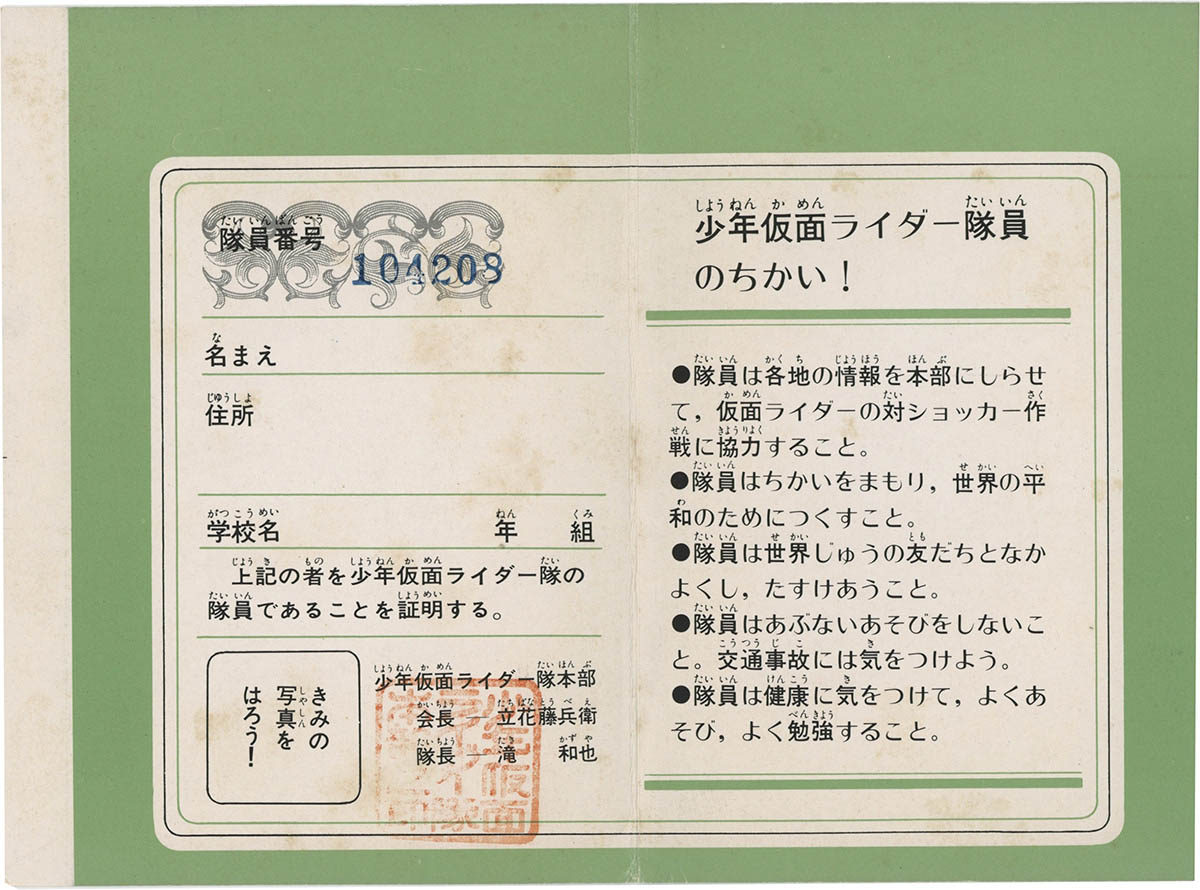 隊員番号
104208
名まえ
住所
学校名 年 組
上記の者を少年仮面ライダー隊の
隊員であることを証明する。
きみの
写真を
はろう!
少年仮面ライダー隊本部
会長—立花藤兵衛
隊長—滝 和也
少年仮面ライダー隊員
のちかい!
●隊員は各地の情報を本部にしらせ
て，仮面ライダーの対ショッカー作
戦に協力すること。
●隊員はちかいをまもり，世界の平
和のためにつくすこと。
●隊員は世界じゅうの友だちとなか
よくし，たすけあうこと。
●隊員はあぶないあそびをしないこ
と。交通事故には気をつけよう。
●隊員は健康に気をつけて，よくあ
そび，よく勉強すること。